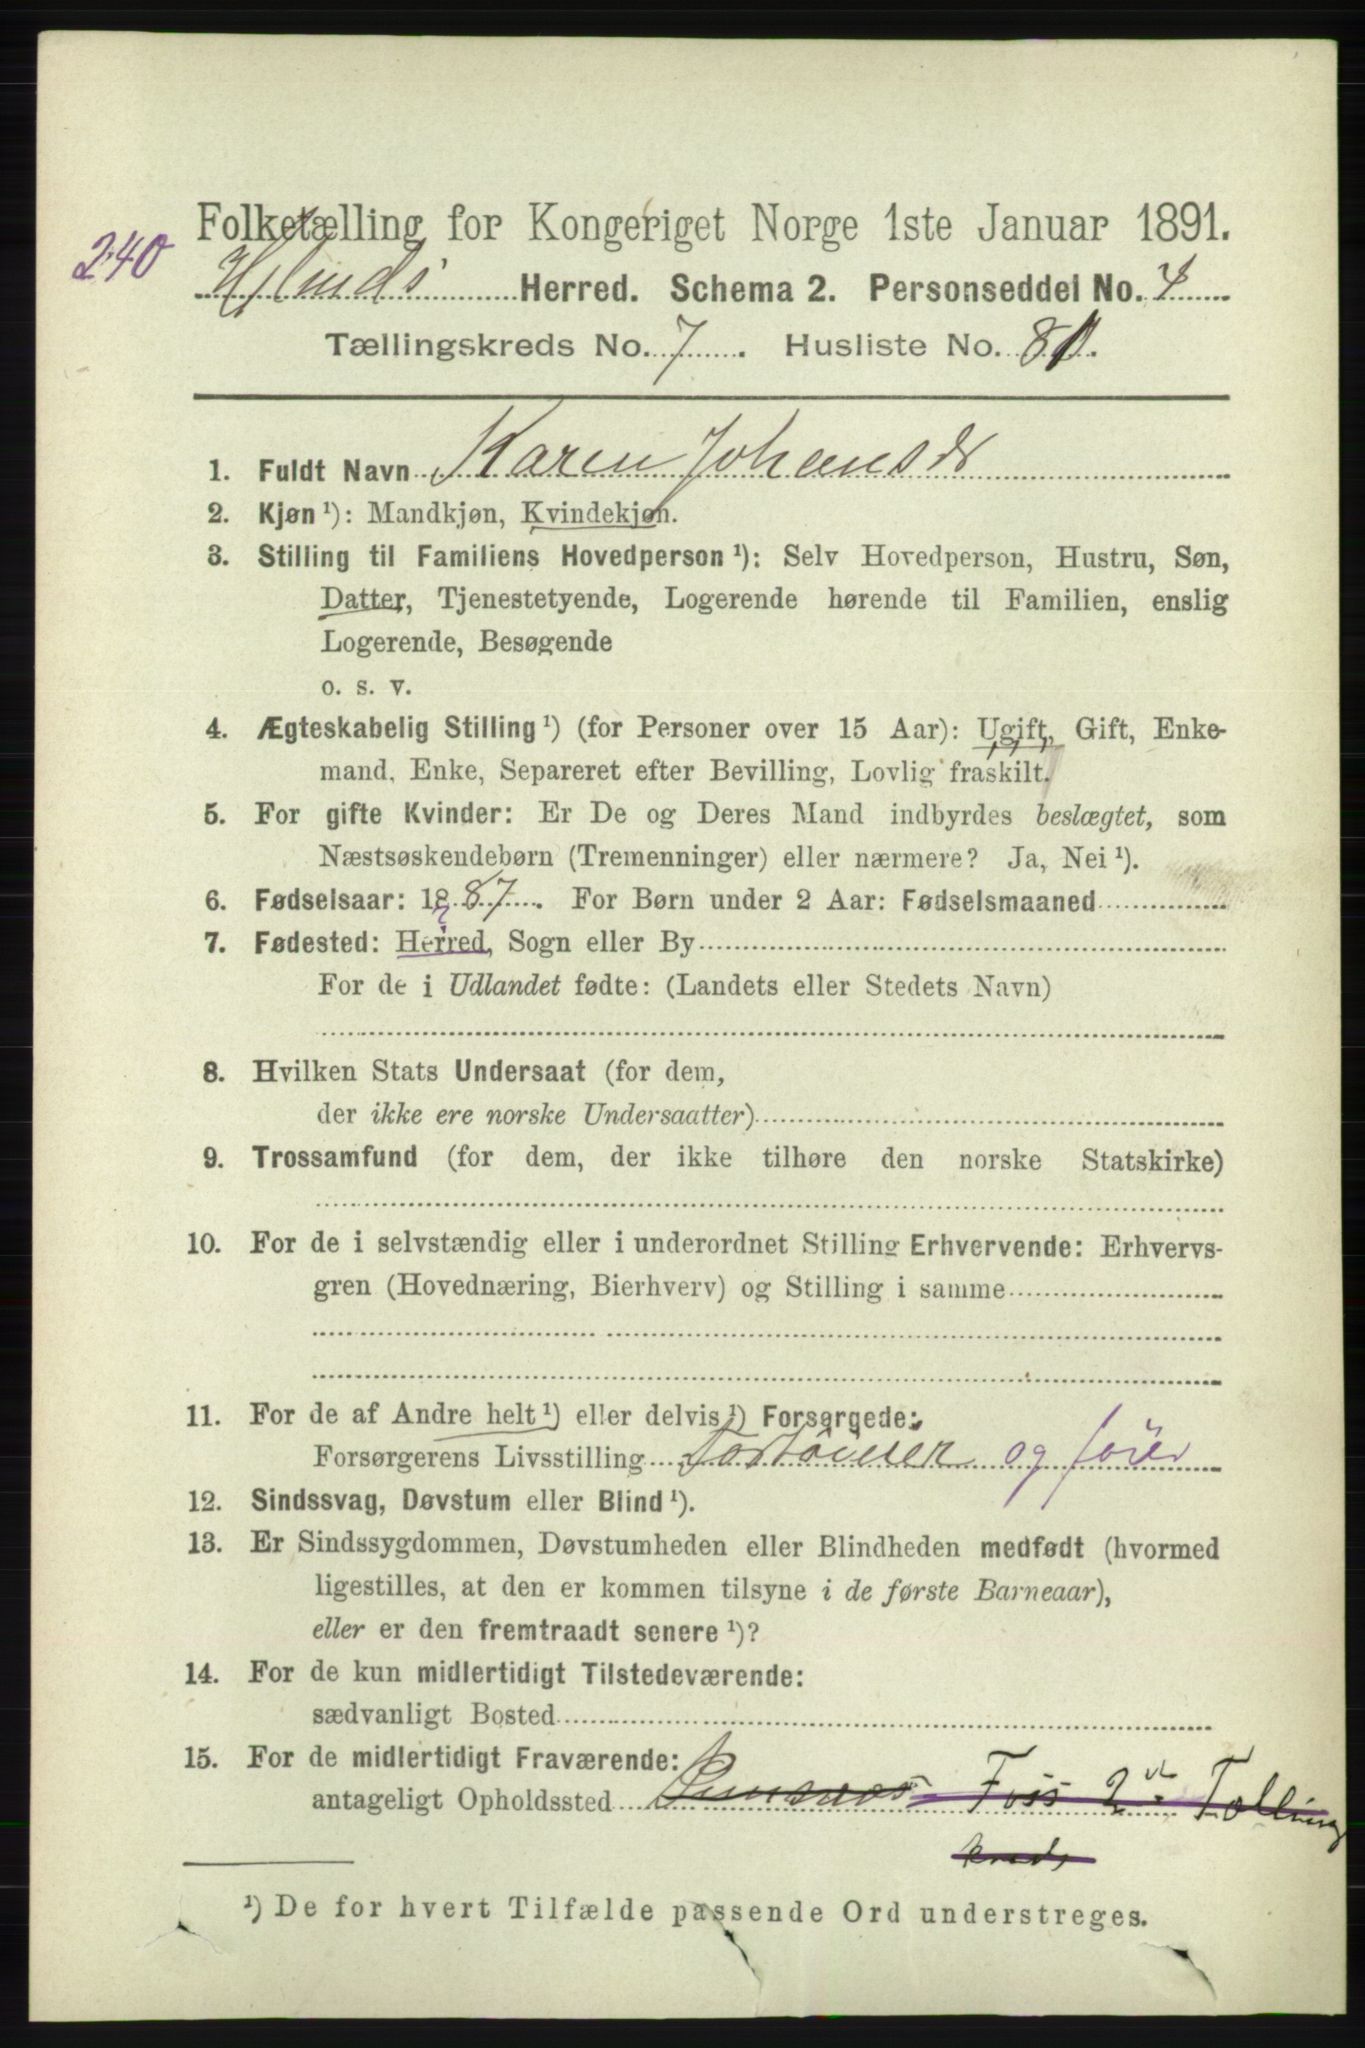 Folketælling for Kongeriget Norge 1ste Januar 1891.
240
Herred. Schema 2. Personseddel No. 4
Tællingskreds No. 7. Husliste No. 81.
1. Fuldt Navn Karen Johansdr
2. Kjøn¹): Mandkjøn, Kvindekjøn.
3. Stilling til Familiens Hovedperson¹): Selv Hovedperson, Hustru, Søn,
Datter, Tjenestetyende, Logerende hørende til Familien, enslig
Logerende, Besøgende
o. s. v.
4. Ægteskabelig Stilling¹) (for Personer over 15 Aar): Ugift, Gift, Enke-
mand, Enke, Separeret efter Bevilling, Lovlig fraskilt.
5. For gifte Kvinder: Er De og Deres Mand indbyrdes beslægtet, som
Næstsøskendebørn (Tremenninger) eller nærmere? Ja, Nei¹).
6. Fødselsaar: 1887. For Børn under 2 Aar: Fødselsmaaned
7. Fødested: Herred, Sogn eller By
For de i Udlandet fødte: (Landets eller Stedets Navn)
8. Hvilken Stats Undersaat (for dem,
der ikke ere norske Undersaatter)
9. Trossamfund (for dem, der ikke tilhøre den norske Statskirke)
10. For de i selvstændig eller i underordnet Stilling Erhvervende: Erhvervs-
gren (Hovednæring, Bierhverv) og Stilling i samme
11. For de af Andre helt¹) eller delvis¹) Forsørgede:
Forsørgerens Livsstilling og
12. Sindssvag, Døvstum eller Blind¹).
13. Er Sindssygdommen, Døvstumheden eller Blindheden medfødt (hvormed
ligestilles, at den er kommen tilsyne i de første Barneaar),
eller er den fremtraadt senere¹)?
14. For de kun midlertidigt Tilstedeværende:
sædvanligt Bosted
15. For de midlertidigt Fraværende:
antageligt Opholdssted Foss 2 Tælling
kreds
¹) De for hvert Tilfælde passende Ord understreges.